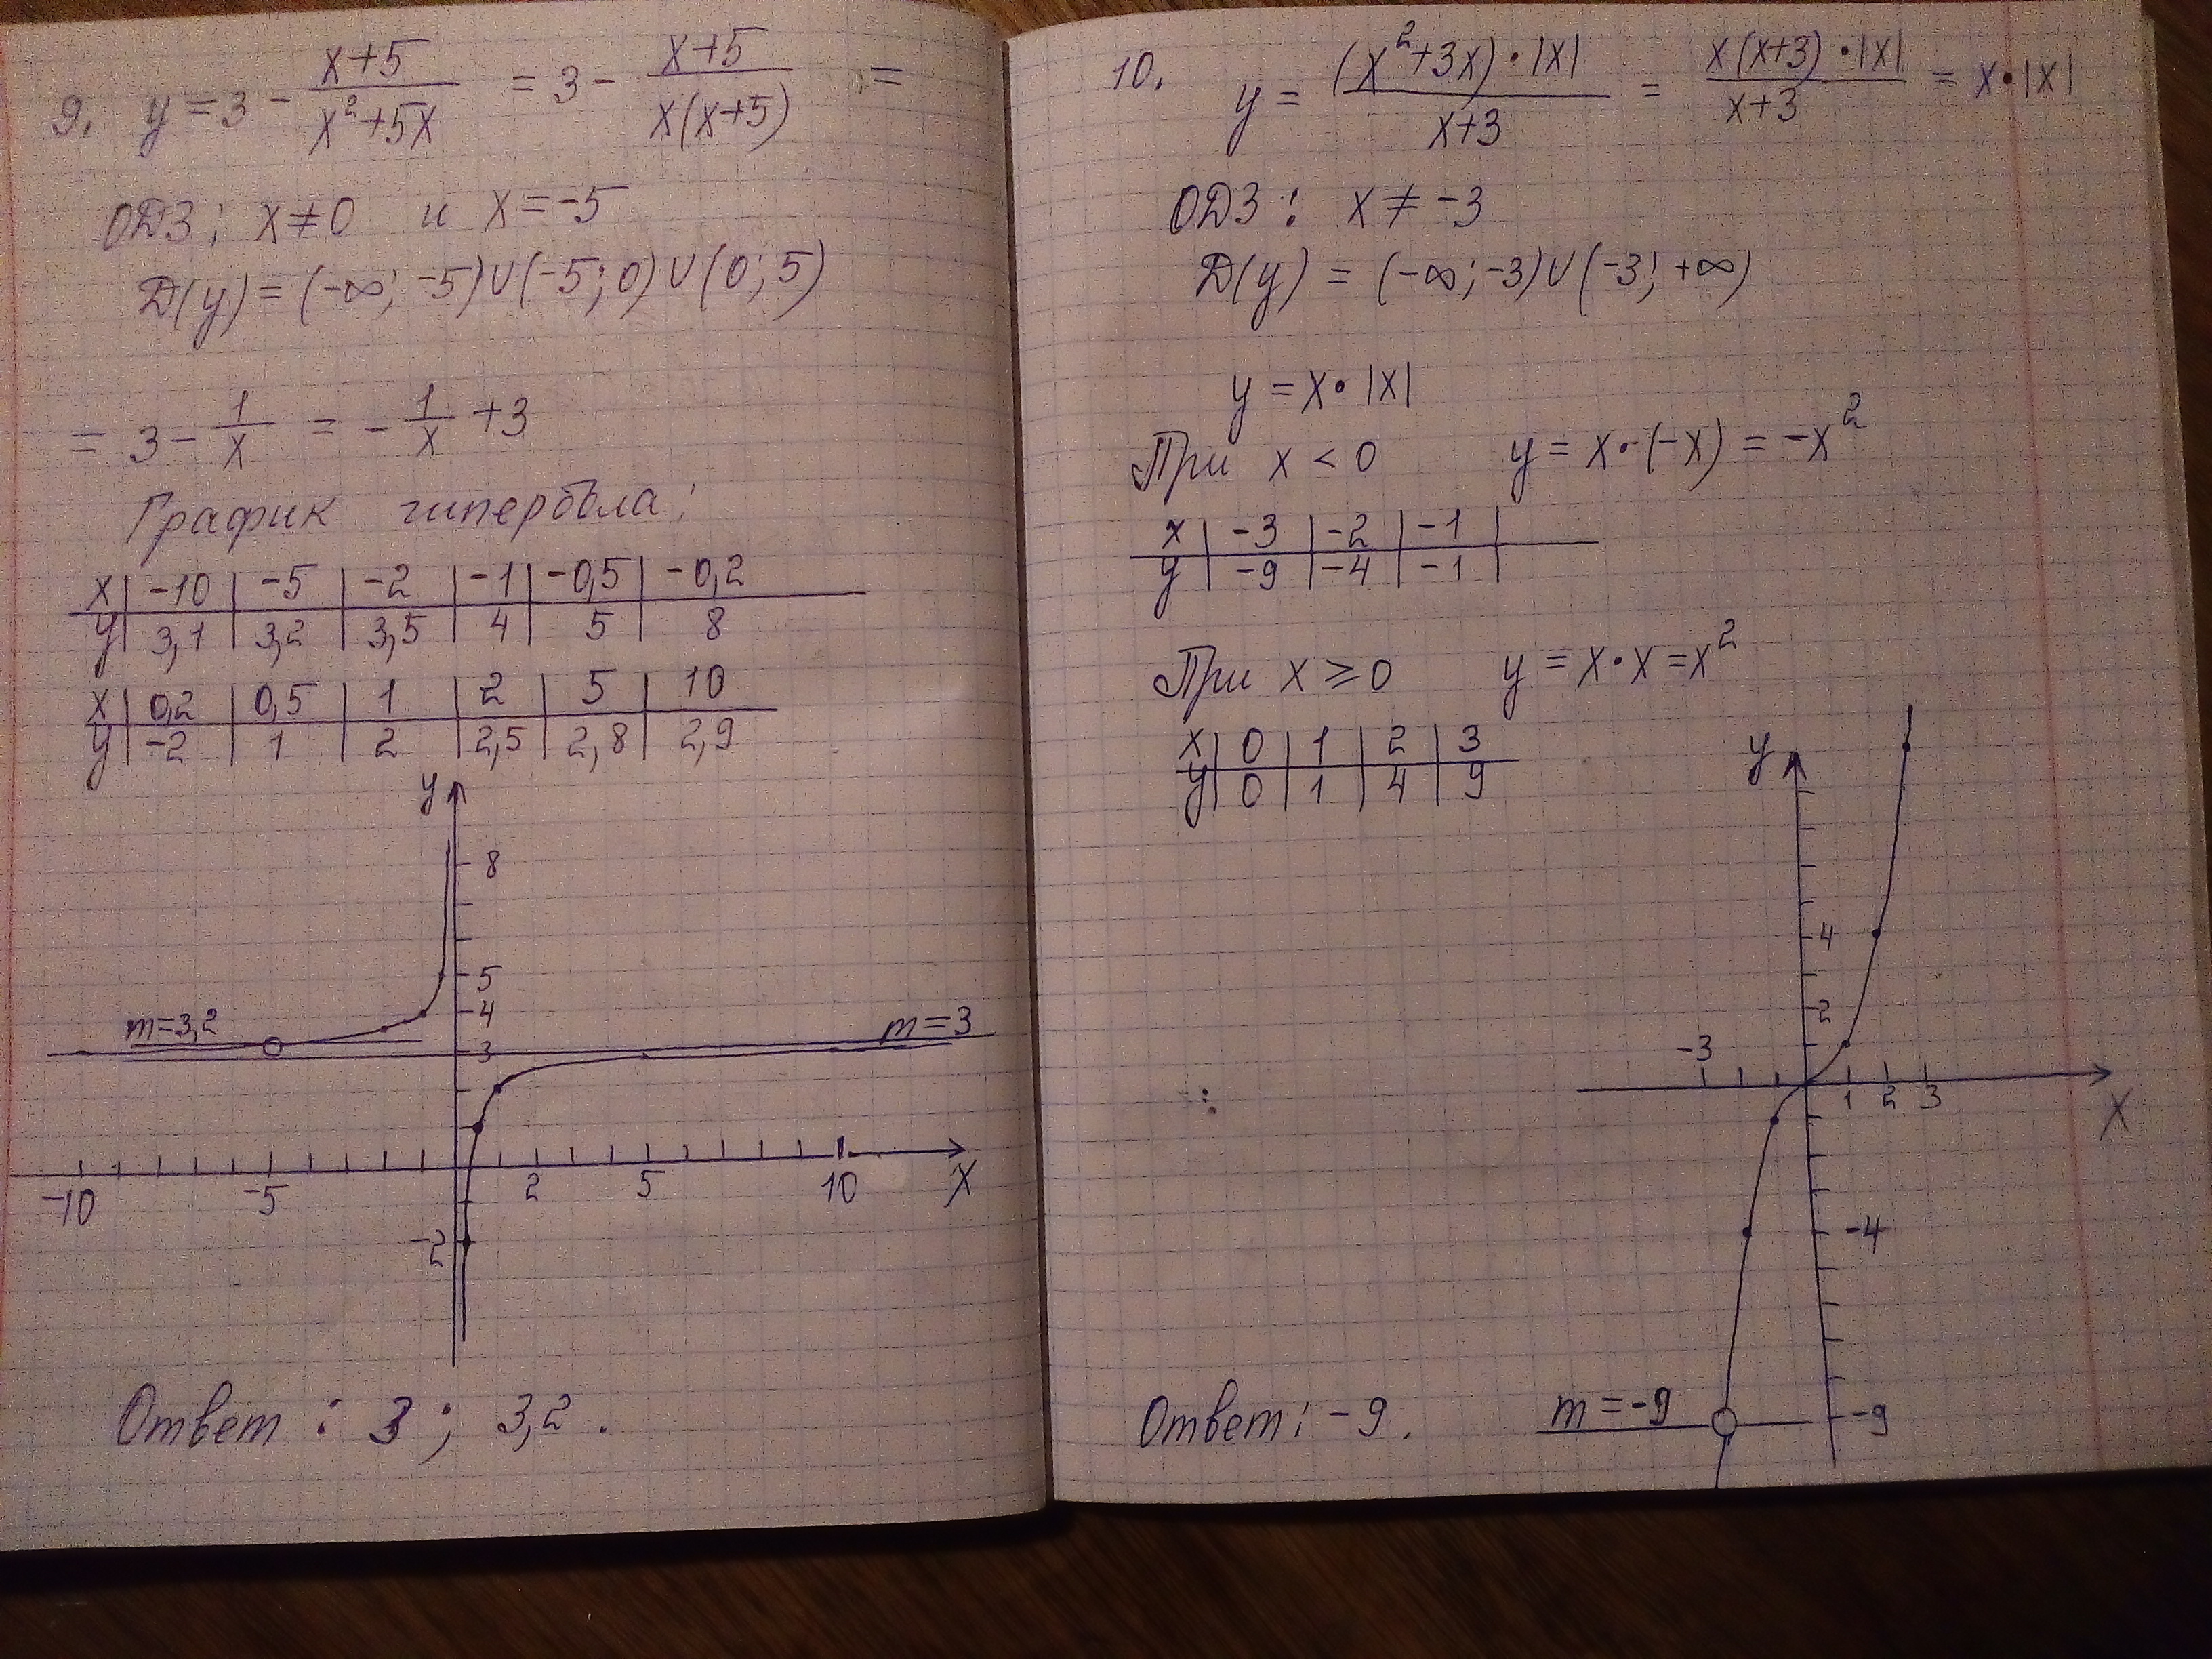 9. y = 3 - (x+5)/(x²+5x) = 3 - (x+5)/(x(x+5)) =
ОДЗ: x ≠ 0 и x = -5
D(y) = (-∞; -5)∪(-5; 0)∪(0; 5)
= 3 - 1/x = - 1/x + 3
График гипербола:
x | -10 | -5 | -2 | -1 | -0,5 | -0,2
y | 3,1 | 3,2 | 3,5 | 4 | 5 | 8
x | 0,2 | 0,5 | 1 | 2 | 5 | 10
y | -2 | 1 | 2 | 2,5 | 2,8 | 2,9
y
8
5
4
m=3,2
3
m=3
-10 -5 2 5 10 x
-2
Ответ: 3; 3,2.
10. y = ((x²+3x)·|x|)/(x+3) = (x(x+3)·|x|)/(x+3) = x·|x|
ОДЗ: x ≠ -3
D(y) = (-∞; -3)∪(-3; +∞)
y = x·|x|
При x < 0 y = x·(-x) = -x²
x | -3 | -2 | -1 |
y | -9 | -4 | -1 |
При x ≥ 0 y = x·x = x²
x | 0 | 1 | 2 | 3
y | 0 | 1 | 4 | 9
y
4
2
-3 1 2 3 x
-4
m = -9 -9
Ответ: -9.